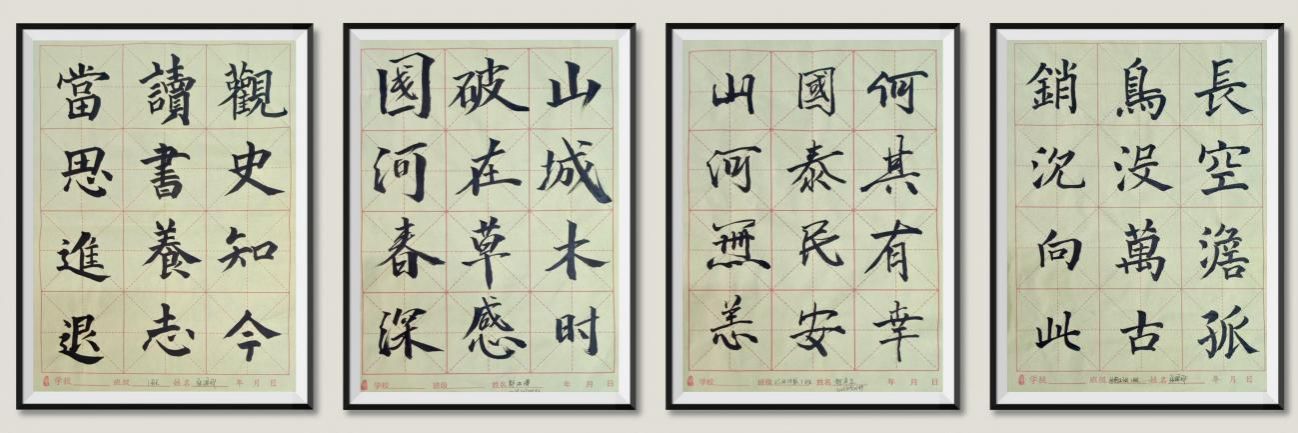 觀史知今
讀書養志
當思進退
学校 班级 1班 姓名 年 月 日
國破山
河在城
春草木
深感时
学校 班级 姓名 年 月 日
何其有幸
國泰民安
山河無恙
学校 班级 姓名 年 月 日
長空澹孤
鳥没萬古
銷沉向此
学校 班级 姓名 年 月 日